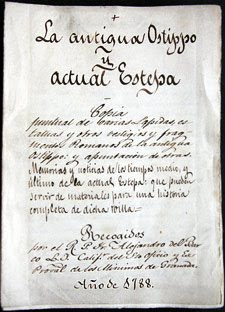 La antigua Ostippo
y
actual Estepa
Copia
puntual de varias Lapidas, es,
tatuas y otros vestigios y frag
mentos Romanos de la antigua
Ostippo: y apuntacion de otras
Memorias y noticias de los tiempos medio, y
ultimo de la actual Estepa: que pueden
servir de materiales para una historia
completa de dicha villa.
Recogidos
por el R. P. Fr. Alejandro del
Califr. del Sto. Oficio y Ex
Proval. de los Minimos de Granada.
Año de 1788.